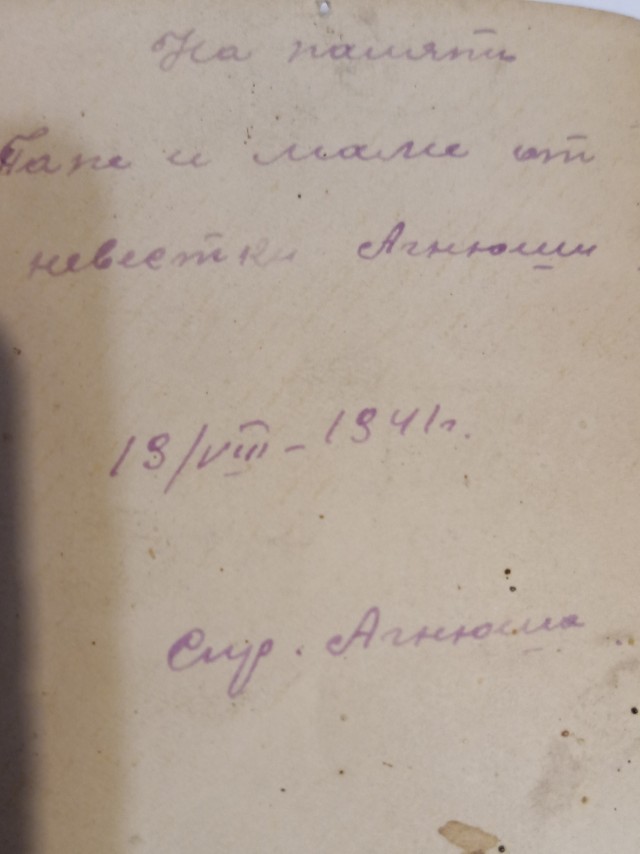 На память
Папе и маме от
невестки Агнюши
19/VIII – 1941г.
Агнюша